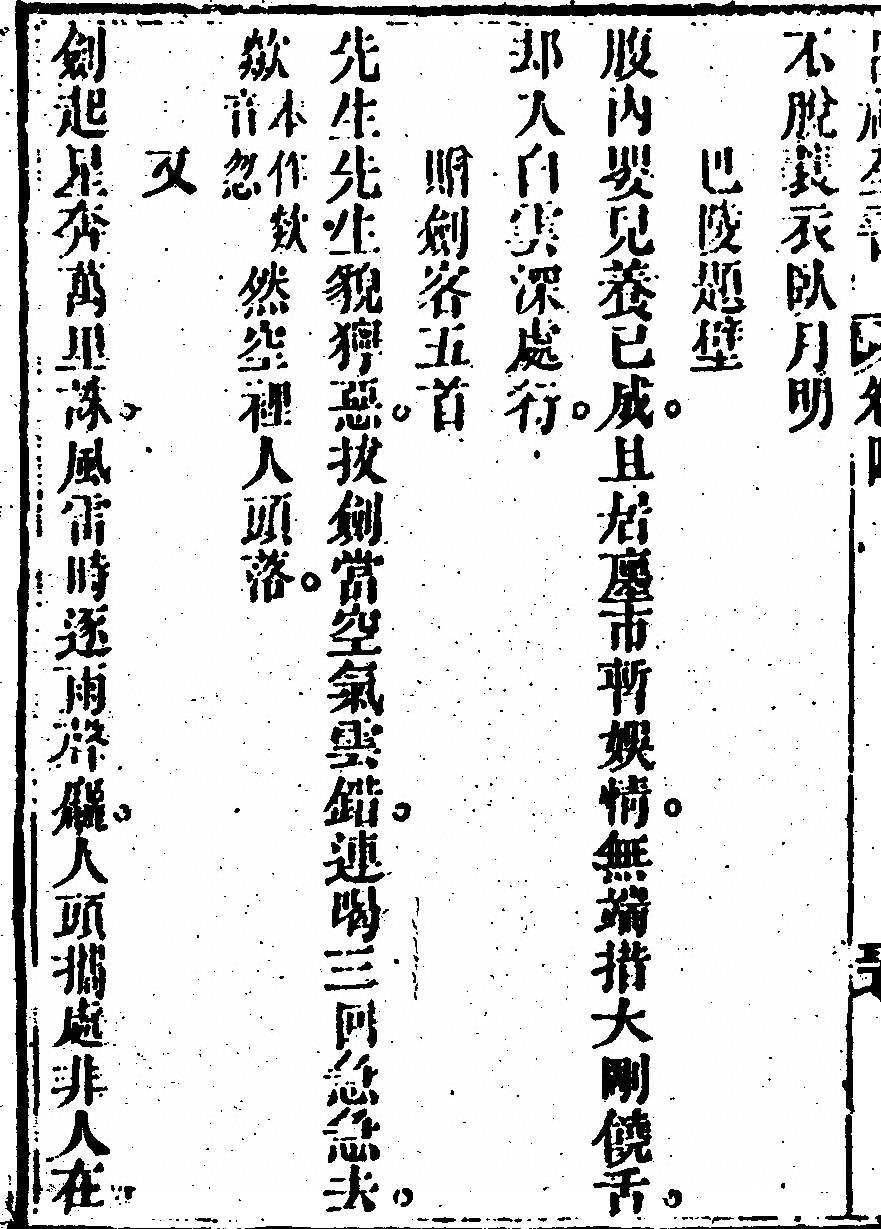 不脫蓑衣臥月明
巴陵題壁
腹內嬰兒養已成。且居廛市暫娛情。無端措大剛饒舌。
却入白雲深處行。
贈劍客五首
先生先生貌獰惡。拔劍當空氣雲錯。連喝三回急急去。
欻本作欻音忽然空裡人頭落。
又
劍起星奔萬里誅。風雷時逐雨聲麤。人頭攜處非人在。